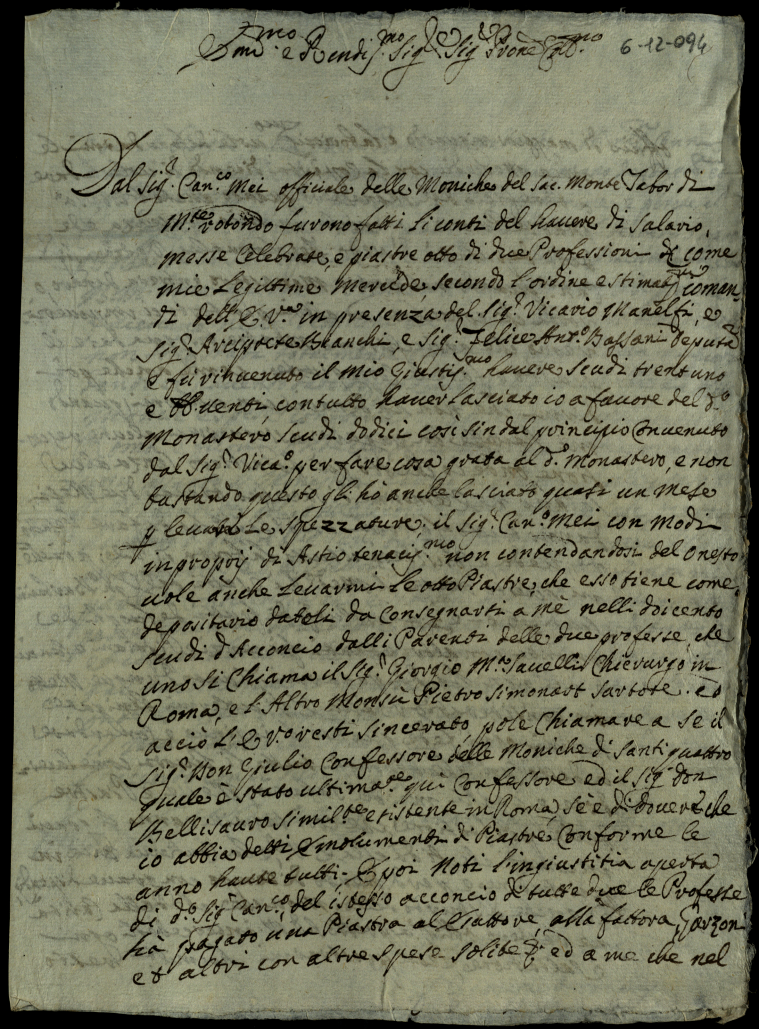 6-12-094
Em.mo e Rendis.mo Sig.r Sig.r Prone Col.mo
Dal Sig.r Can.co Mei officiale delle Moniche del Sac. Monte Tabor di
M.te rotondo furono fatti li conti del havere di salario,
messe Celebrate, e piastre otto di due Professioni come
mie legittime mercede secondo l'ordine e stimatis.mi coman-
di dell' E. V.ra in presenza del Sig.r Vicario Manelfi, e
Sig.r Arciprete Bianchi, e Sig.r Felice Ant.o Bassani Deputa
fu rinvenuto il mio Giustis.mo havere scudi trent'uno
e venti, con tutto haver lasciato io a favore del d.o
Monastero scudi dodici così sin dal principio convenuto
dal Sig.r Vica.o per fare cosa grata al d.o Monastero, e non
bastando questo gli hò anche lasciato quasi un mese
p levare le spezzature. il Sig.r Can.o Mei con modi
improprij di Astio tenacis.mo non contendandosi del onesto
vole anche levarmi le otto Piastre, che esso tiene come
depositario dateli da consegnarsi a mè nelli doicento
scudi d'Acconcio dalli Parenti delle due professe, che
uno si chiama il Sig.r Giorgio M.a Savelli Chierurgo in
Roma, e l'Altro Monsù Pietro Simonart sartore. ed
acciò l'E. V. resti sincerato, pole chiamare a se il
Sig.r Don Giulio Confessore delle Moniche di Santi quattro
quale è stato ultimat.e qui Confessore ed il Sig.r Don
Bellisauro similt.e esistente in Roma, se è di dovere che
io abbia detti Emolumenti di Piastre, Conforme le
anno haute tutti. E poi Noti l'ingiustitia aperta
di d.o Sig.r Can.co, del istesso acconcio di tutte due le Professe
hà pagato una Piastra al Fattore, alla fattora, Garzoni
et altri con altre spese solite ed a me che nel